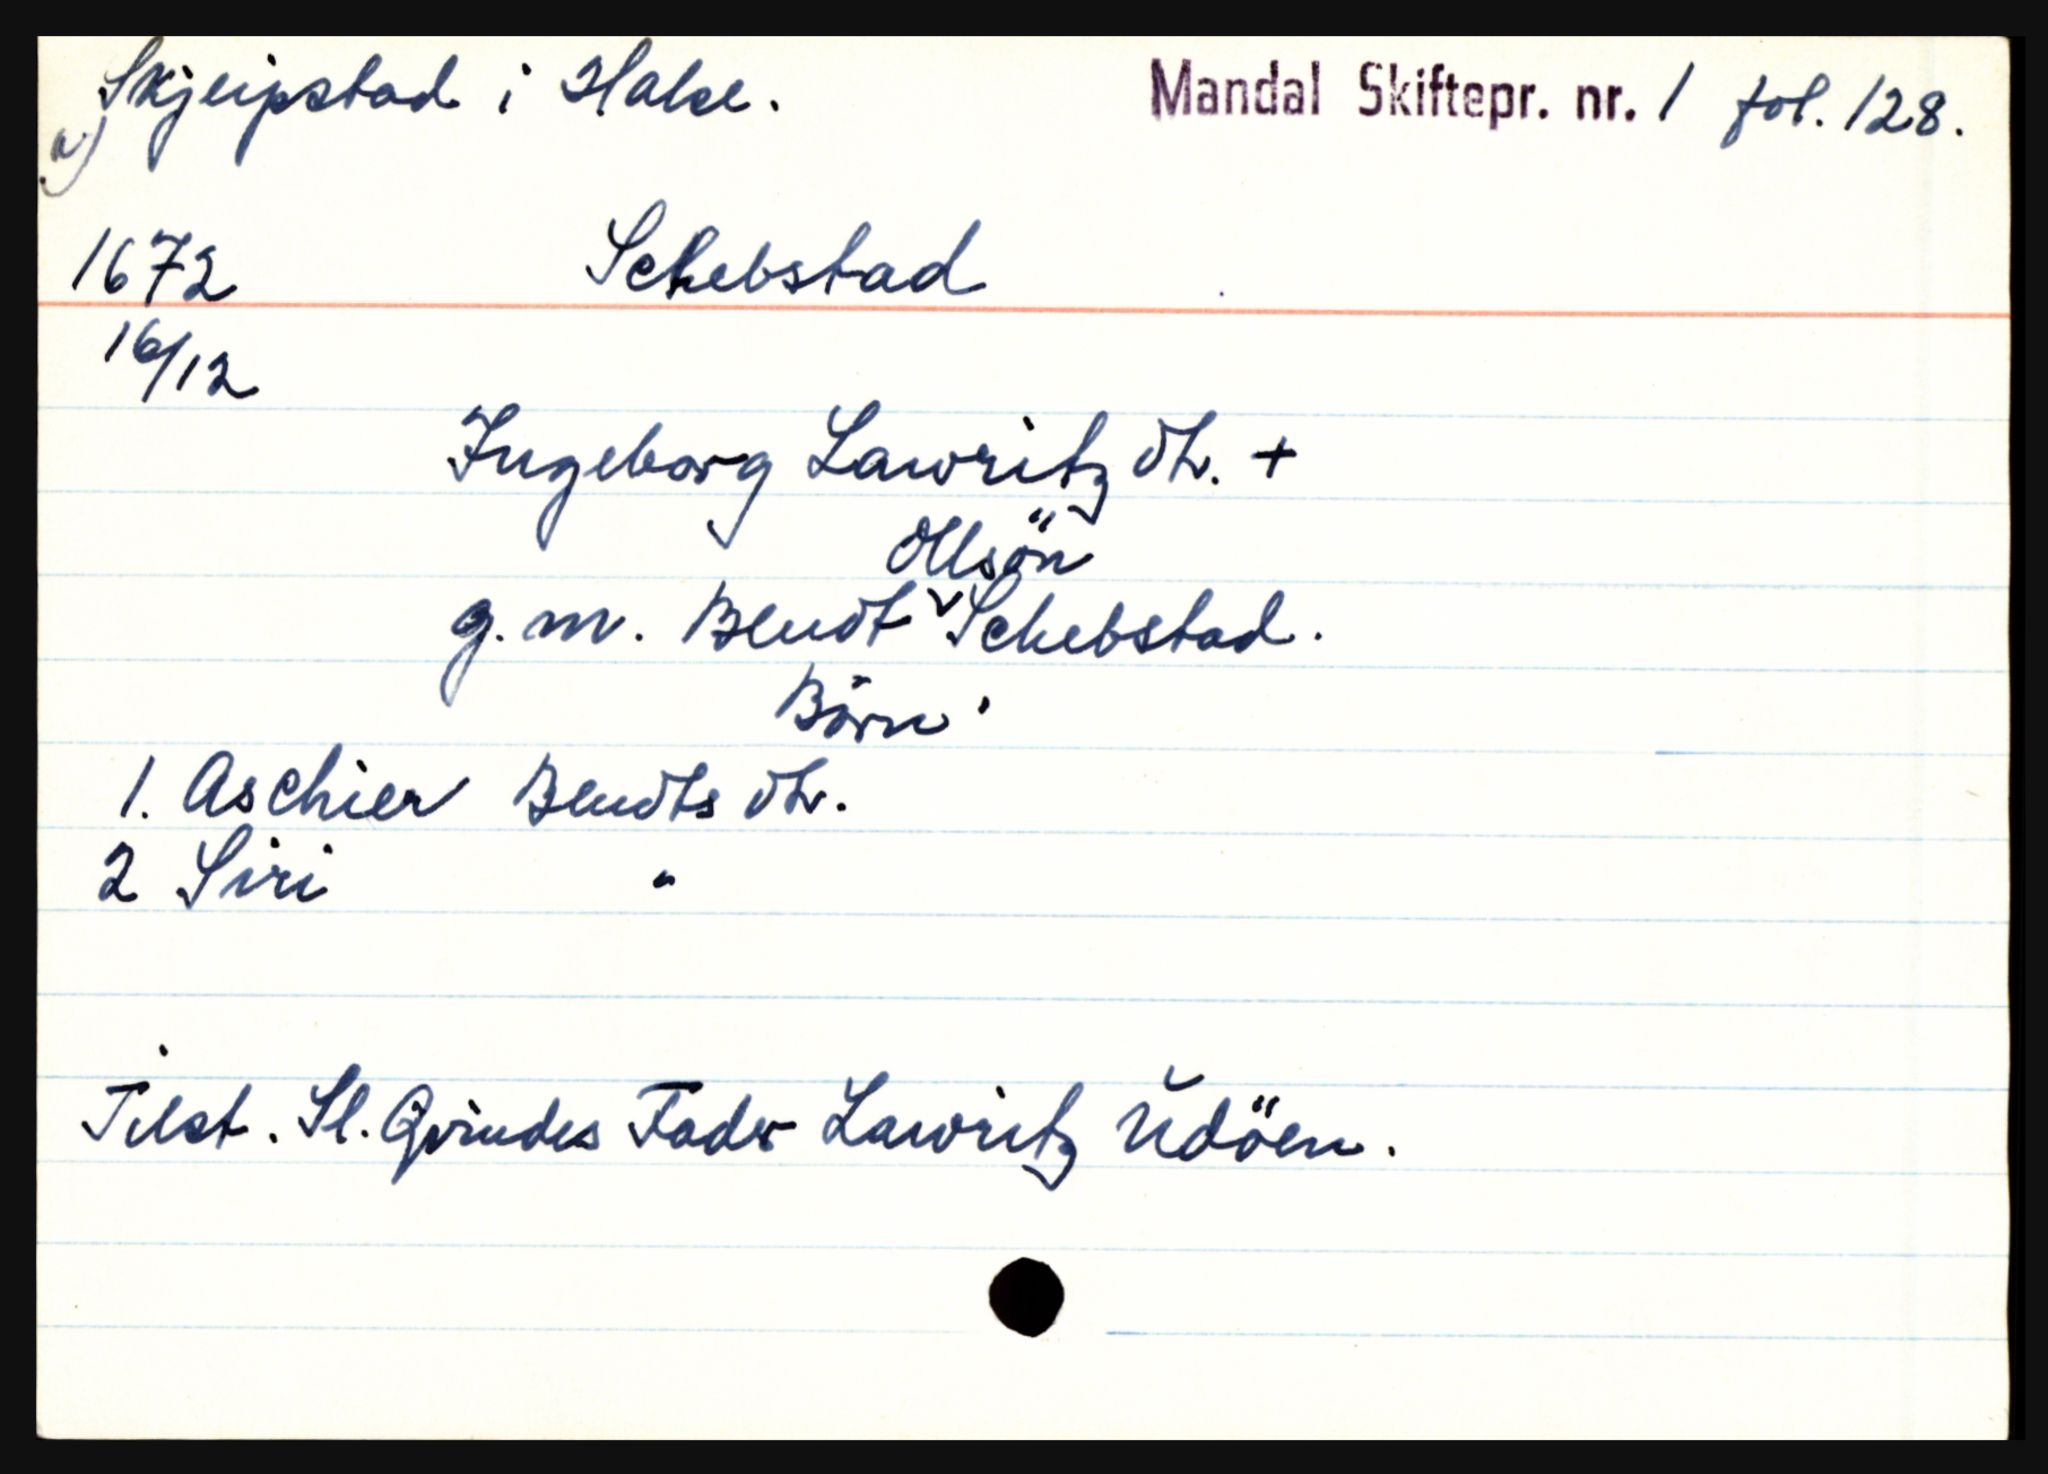 Skjeipstad i Halse. Mandal Skiftepr. nr. 1 fol. 128.
a)
1672 Schebstad
16/12
Ingeborg Lawritz dtr. +
Ollsön
g. m. Bendt v Schebstad.
Börn:
1. Aschier Bendts dtr.
2 Siri "
Tilst. Sl. Qvindes Fader Lawritz Udöen.